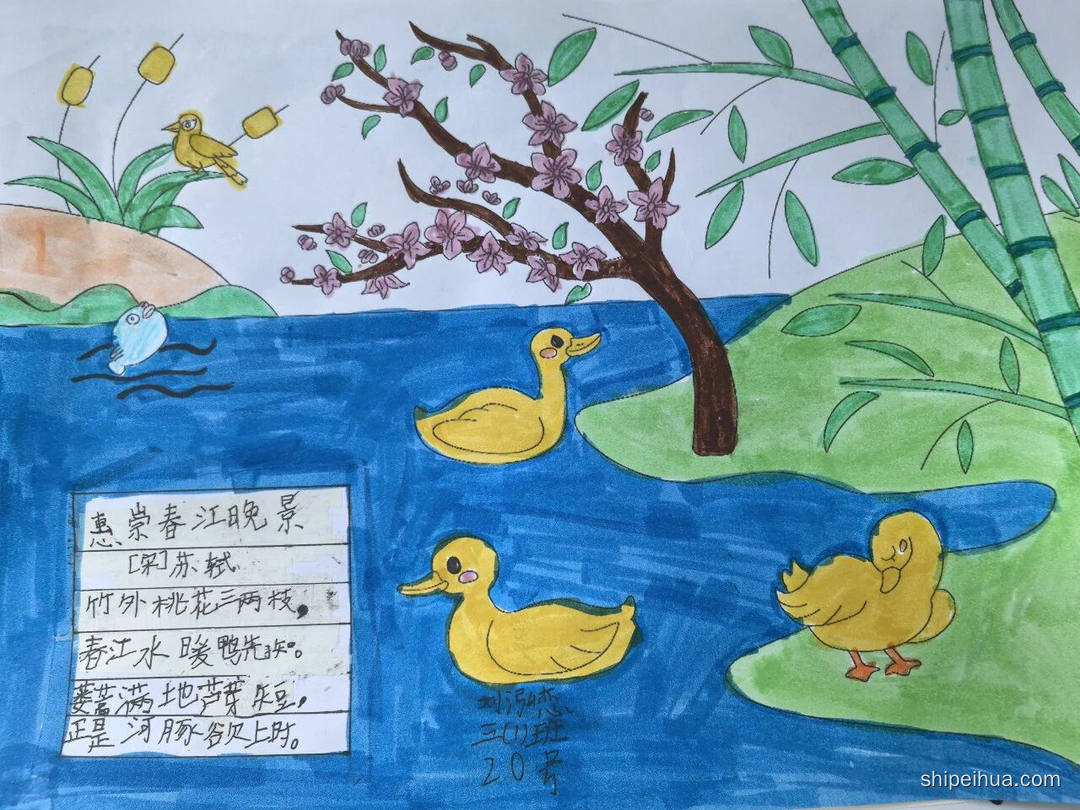 惠崇春江晚景
[宋]苏轼
竹外桃花三两枝,
春江水暖鸭先知。
蒌蒿满地芦芽短,
正是河豚欲上时。
三(1)班
20号
shipeihua.com